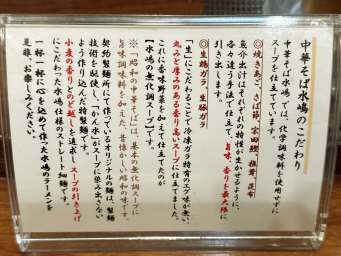 中華そば水嶋のこだわり
中華そば水嶋では、化学調味料を使用せずに
スープを仕立てています。
◎焼きあご、さば節、宗田鰹、椎茸、昆布
魚介出汁はそれぞれの特性が生かせるように、
各々違う手法で仕立て、旨味、香りを最大限に
引き出しています。
◎生鶏ガラ 生豚ガラ
「生」にこだわることで冷凍ガラ特有のエグ味が無く、
丸みと厚みのある香り高いスープに仕立てました。
これに香味野菜を加えて仕立てたのが
【水嶋の無化調スープ】です。
※「昭和の中華そば」は、基本の無化調スープに
旨味調味料を加えた、昔懐かしい昭和の味です。
契約製麺所にて作っているオリジナルの麺は、製麺
技術を駆使し、「かん水」がスープに染み出さない
よう作り込んだ麺です。
小麦の香りとのど越しを追求し、スープの引き上げ
にこだわった水嶋仕様のストレート細麺です。
一杯一杯に心を込めて作った水嶋のラーメンを
是非、お楽しみください。